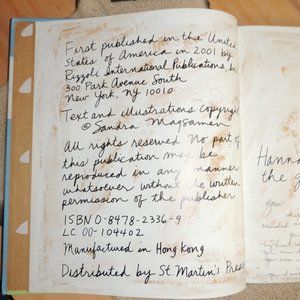 First published in the United
States of America in 2001 by
Rizzoli International Publications, Inc
300 Park Avenue South
New York, NY 10010
Text and illustrations copyright
© Sandra Magsamen
All rights reserved No part of
this publication may be
reproduced in any manner
whatsoever without the written
permission of the publisher
ISBN 0-8478-2336-9
LC 00-104402
Manufactured in Hong Kong
Distributed by St Martin's Press
Hanna
the g